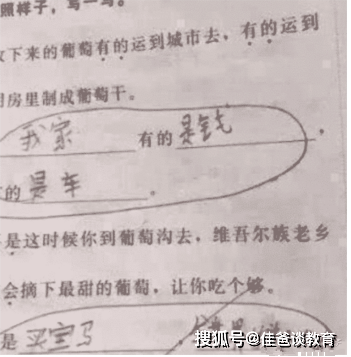 照样子，写一写。
下来的葡萄有的运到城市去，有的运到
房里制成葡萄干。
我家 有的 是钱 ，
的 是车 。
是这时候你到葡萄沟去，维吾尔族老乡
会摘下最甜的葡萄，让你吃个够。
是 买宝马
搜狐号@佳爸谈教育